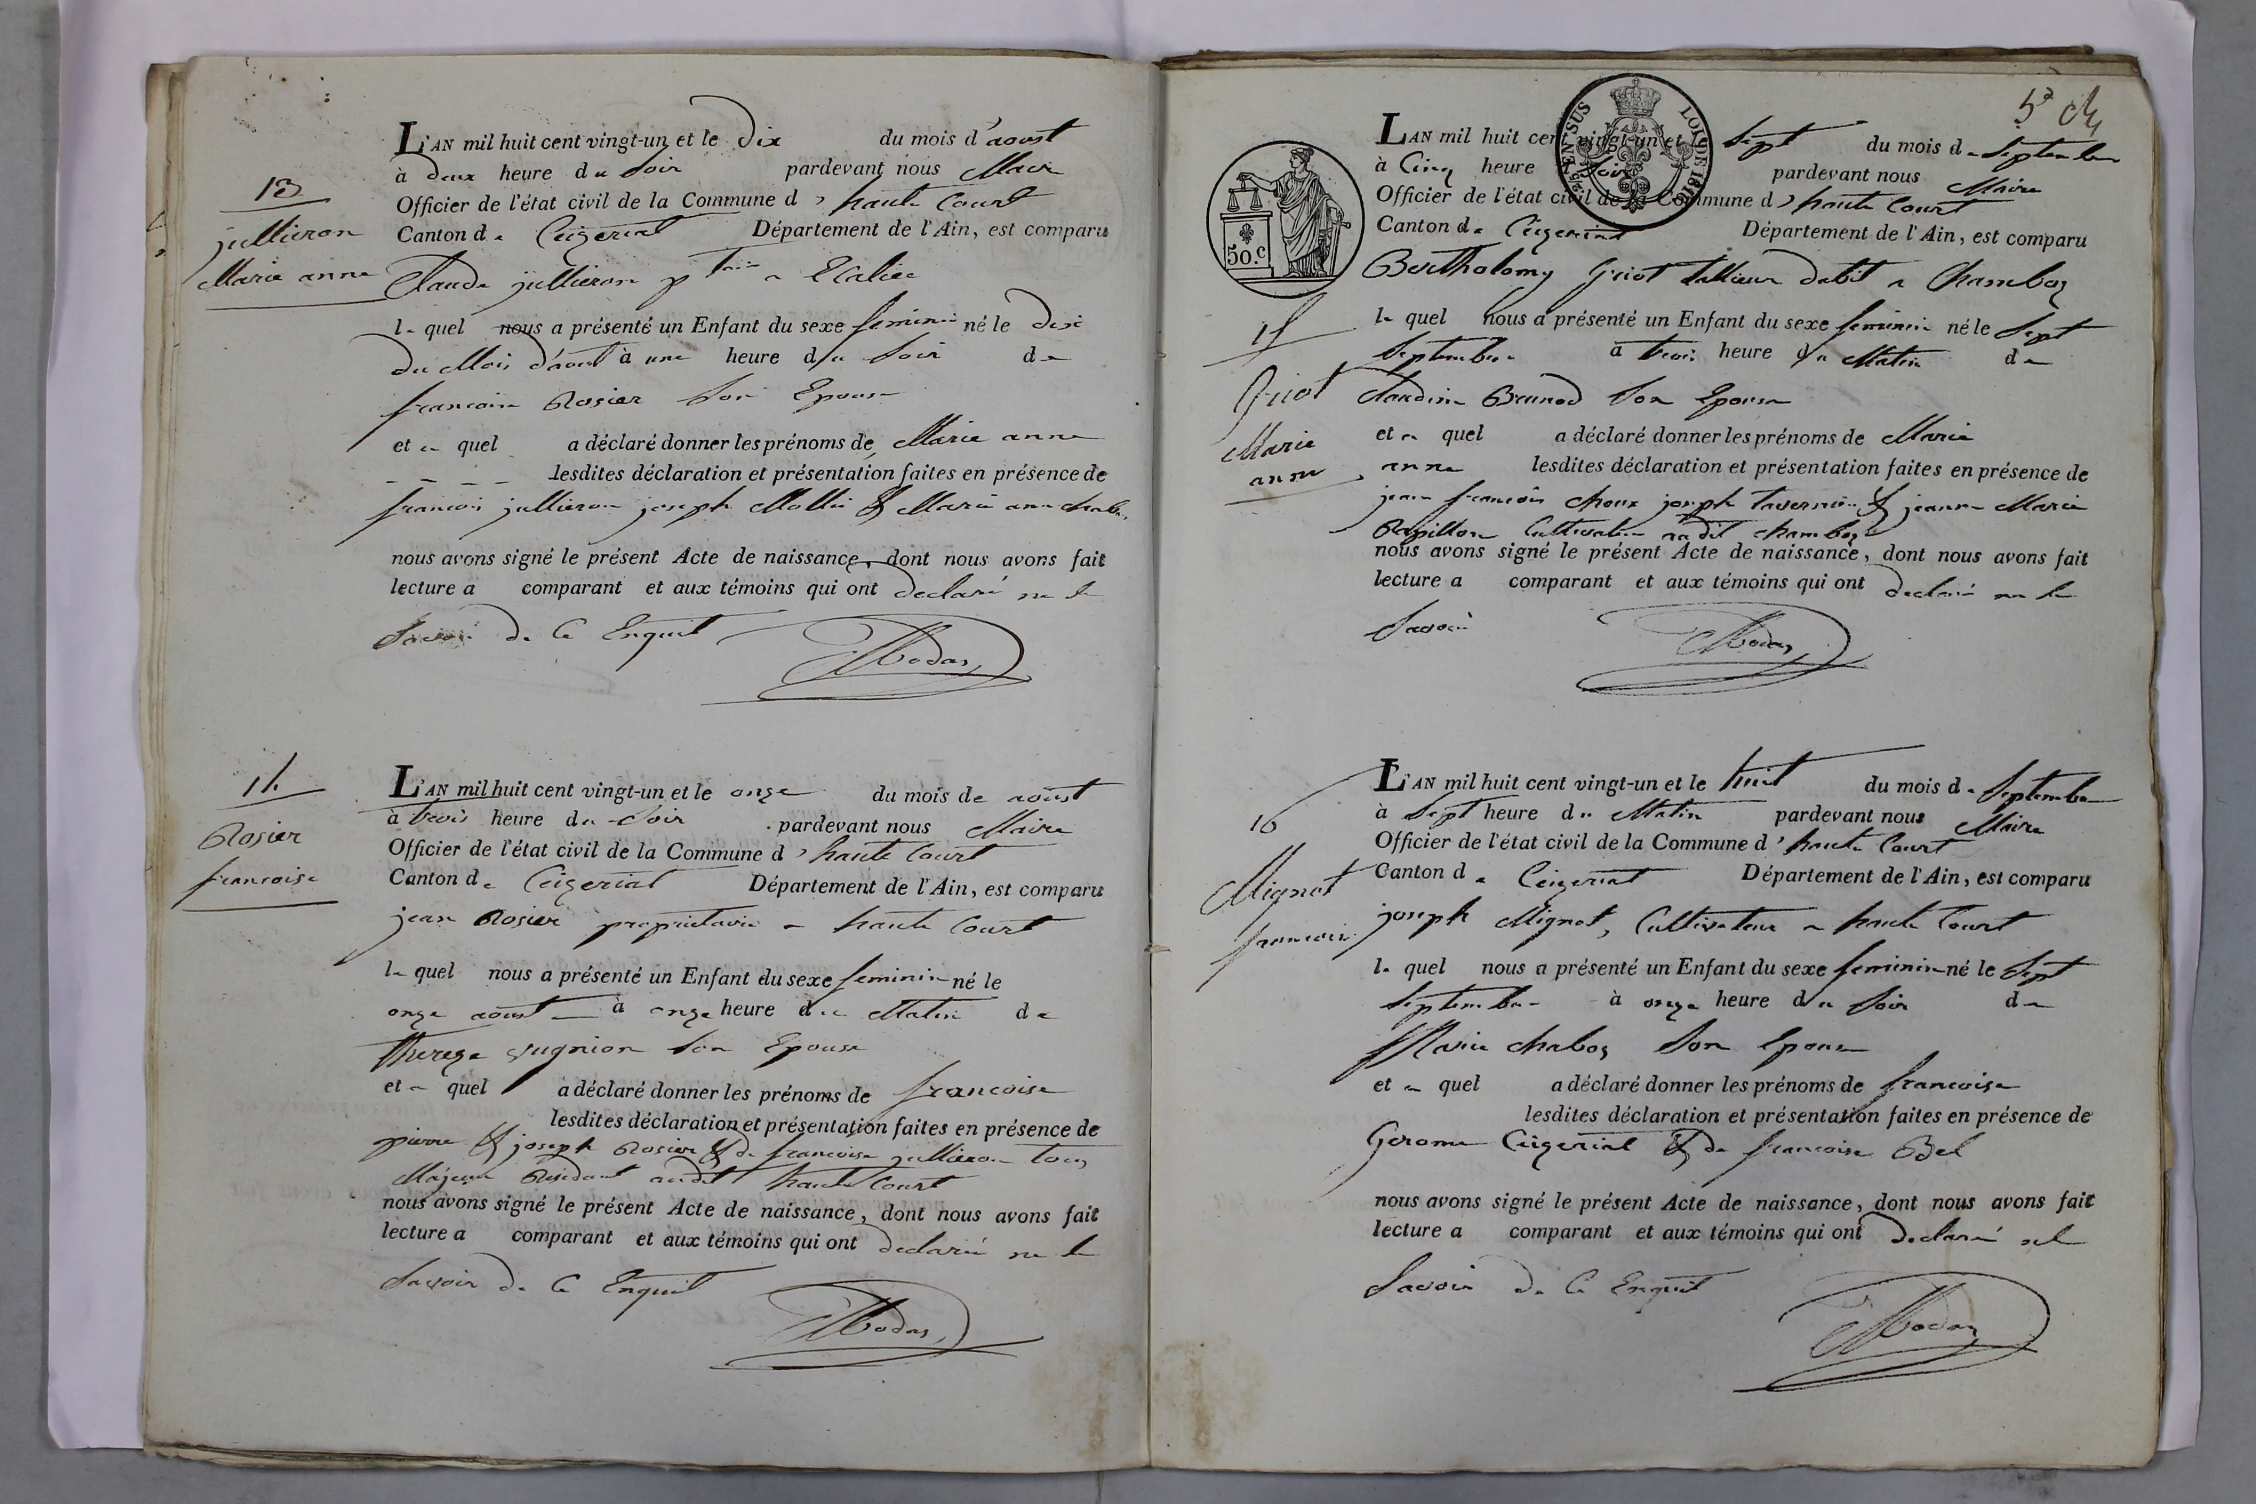 13
jullieron
Marie anne
L'AN mil huit cent vingt-un et le dix du mois d'aoust
à deux heure du Soir pardevant nous Maire
Officier de l'état civil de la Commune d'haute Court
Canton de Ceizeriat Département de l'Ain, est comparu
Claude jullieron a
le quel nous a présenté un Enfant du sexe feminin né le dix
du Mois d'aout à une heure du Soir de
francoise Rosier son Epouse
et le quel a déclaré donner les prénoms de Marie anne
lesdites déclaration et présentation faites en présence de
francois jullieron joseph Mollie & Marie anne
nous avons signé le présent Acte de naissance, dont nous avons fait
lecture a comparant et aux témoins qui ont declaré ne le
Savoir de Ce Enquit
Modas
14
Rosier
francoise
L'AN mil huit cent vingt-un et le onze du mois de aoust
à trois heure du Soir pardevant nous Maire
Officier de l'état civil de la Commune d'haute Court
Canton de Ceizeriat Département de l'Ain, est comparu
jean Rosier proprietaire a haute Court
le quel nous a présenté un Enfant du sexe feminin né le
onze aoust à onze heure du Matin de
thereze vugnion son Epouse
et a quel a déclaré donner les prénoms de francoise
lesdites déclaration et présentation faites en présence de
pierre & joseph Rosier & de francoise jullieron tous
Majeur Residant audit haute Court
nous avons signé le présent Acte de naissance, dont nous avons fait
lecture a comparant et aux témoins qui ont declaré ne le
Savoir de Ce Enquit
Modas
5e
SUS EN LOI DE 1816
50.C
15
Griot
Marie
anne
L'AN mil huit cent vingt-un et le Sept du mois de Septembre
à Cinq heure Soir pardevant nous Maire
Officier de l'état civil de la Commune d'haute Court
Canton de Ceizeriat Département de l'Ain, est comparu
Berthelomy Griot tallieur dabit a Chamboz
le quel nous a présenté un Enfant du sexe feminin né le Sept
Septembre à trois heure du Matin de
Claudine Brunod son Epouse
et a quel a déclaré donner les prénoms de Marie
anne lesdites déclaration et présentation faites en présence de
jean francois choux joseph tavernier & jeanne Marie
Papillon Cultivateur audit chamboz
nous avons signé le présent Acte de naissance, dont nous avons fait
lecture a comparant et aux témoins qui ont declaré ne le
Savoir
Modas
16
Mignot
francoise
L'AN mil huit cent vingt-un et le huit du mois de Septembre
à Sept heure du Matin pardevant nous Maire
Officier de l'état civil de la Commune d'haute Court
Canton de Ceizeriat Département de l'Ain, est comparu
joseph Mignot, Cultivateur a haute Court
le quel nous a présenté un Enfant du sexe feminin né le Sept
Septembre à onze heure du Soir de
Marie chaboz son Epouse
et a quel a déclaré donner les prénoms de francoise
lesdites déclaration et présentation faites en présence de
Gerome Ceizeriat & de francoise Bel
nous avons signé le présent Acte de naissance, dont nous avons fait
lecture a comparant et aux témoins qui ont declaré
Savoir de Ce Enquit
Modas